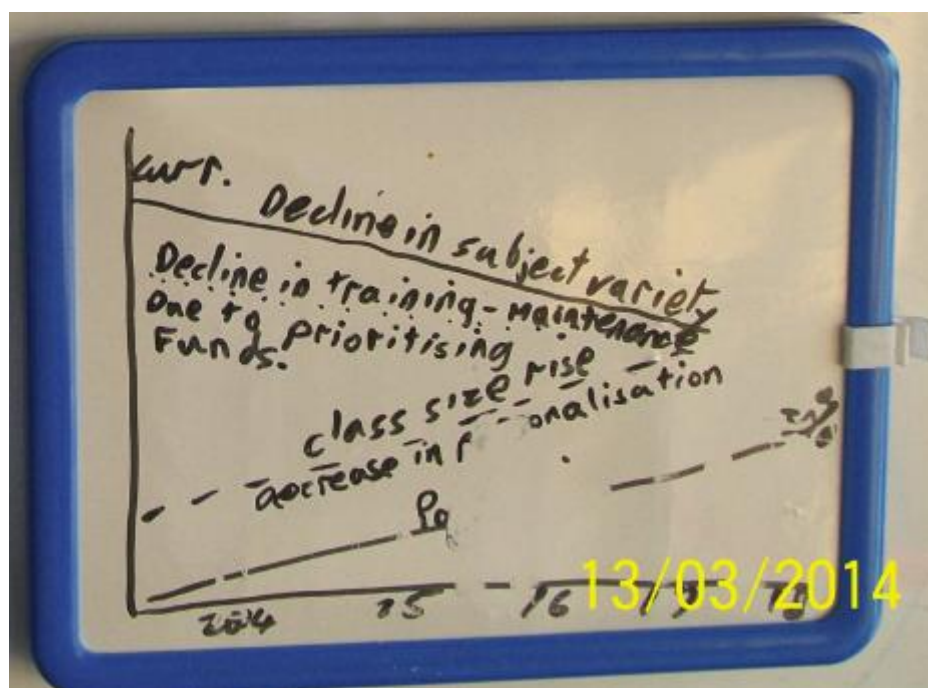 curr.
Decline in subject variety
Decline in training - maintenance
Due to prioritising
Funds.
class size rise
decrease in p onalisation
2014 15 16 17 18
13/03/2014